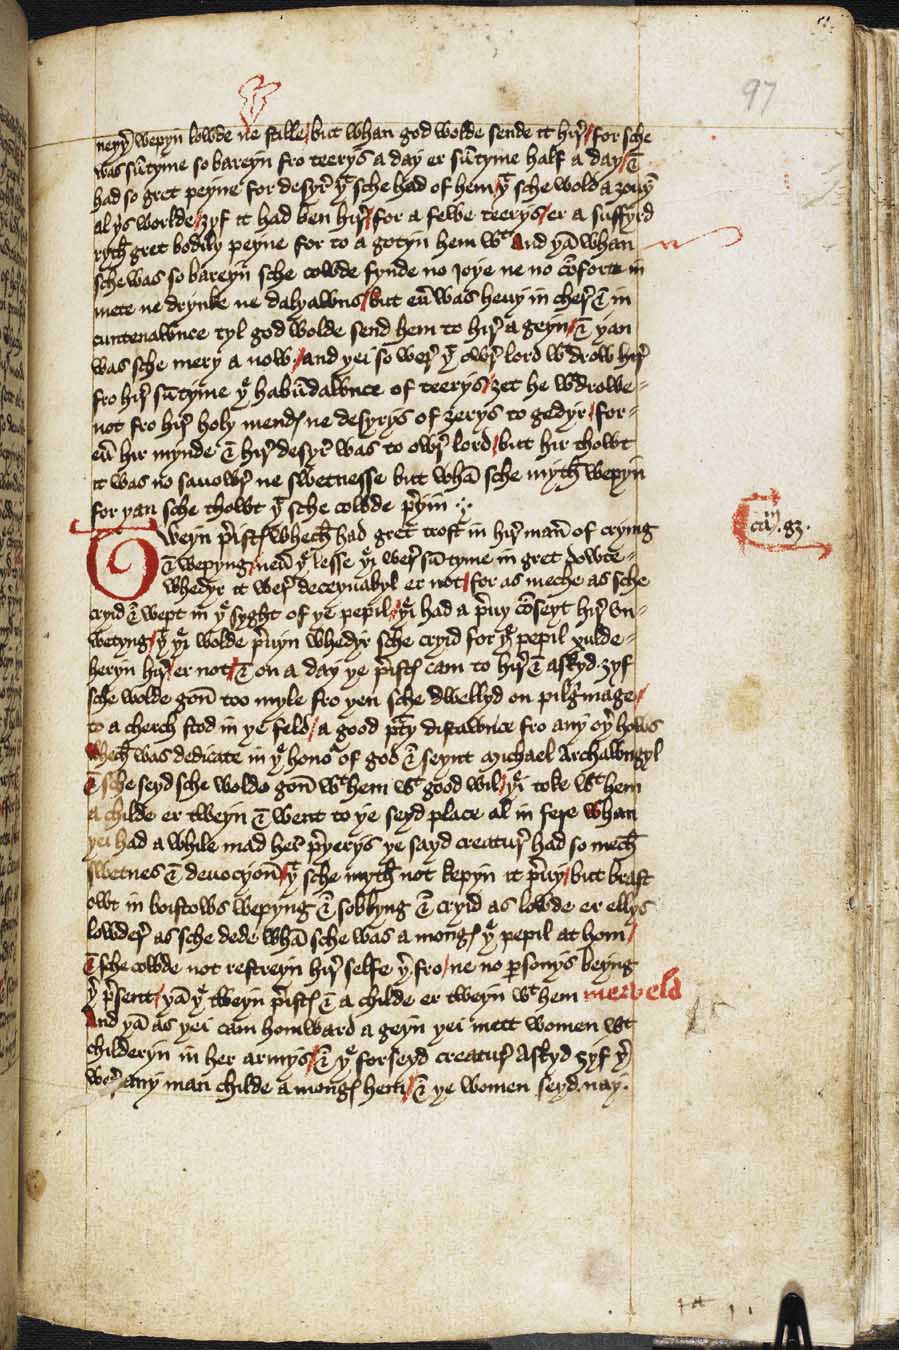 97
neyþ̉ wepyn lowde ne stille / but whan god wolde sende it hir̉ / for sche
was sūtyme so bareyn fro teerys a day er sūtyme half a day / &
had so gret peyne for desyr̉ yͭ sche had of hem / yͭ sche wold a ȝouyn
al ys worlde / ȝyf it had ben hir̉ / for a fewe teerys / er a suffyrd
ryth gret bodily peyne for to a gotyn hem wͭ And yā whan
sche was so bareyn sche cowde fynde no joye ne no cōforte in
mete ne drynke ne dalyawns / but eū was heuy in cher̉ & in
cuntenawnce tyl god wolde send hem to hir̉ a geyn / & yan
was sche mery a now / and yei so wer̉ yͭ owr̉ lord wͭdrow hir̉
fro hir̉ sūtyme yͤ habūdawnce of teerys / ȝet he wͭdrowe
not fro hir̉ holy mendys ne desyrys of ȝerys to gedyr / for
eū hir mynde & hir̉ desyr̉ was to owr̉ lord / but hir thowt
it was no sauowr̉ ne swetnesse but whā sche myth wepyn
for yan sche thowt yͭ sche cowde p̉yin
Tweyn p̉istys whech had gret trost in hir̉ man̄ of crying
& wepyng / neū yͤ lesse yͥ wer̉ sūtyme in gret dowte
whedyr it wer̉ deceyuabyl er not / for as meche as sche
cryid & wept in yͤ syght of ye pepil / yͥ had a p̉uy cōseyt hir̉ vn
wetyng / yͭ yͥ wolde p̉uyn whedyr sche cryid for yͤ pepil xulde
heryn hir̉ / er not / & on a day ye p̉istys cam to hir̉ & askyd ȝyf
sche wolde gon̄ too myle fro yen sche dwellyd on pilg̉mage /
to a cherch stod in ye feld / a good p̉ty distawnce fro any oỷ hows
whech was dedicate in yͤ honoͬ of god & seynt Michael Archawngyl
& sche seyd sche wolde gon̄ wͭ hem wͭ good wil / yͥ toke wͭ hem
a childe er tweyn & went to ye seyd place al in fere whan
yei had a while mad her̉ p̉yerys ye sayd creatur̉ had so mech
swetnes & deuocyon̄ / yͭ sche myth not kepyn it p̉uy / but brast
owt in boistows wepyng & sobbyng & cryid as lowde er ellys
lowder̉ as sche dede whā sche was a mongys yͤ pepil at hom /
& sche cowde not restreyn hir̉ selfe ỷ fro / ne no ꝑsonys beyng
ỷ p̉sent / yā yͤ tweyn p̉istys & a childe er tweyn wͭ hem merueld
And yā as yei cam homward a geyn yei mett women wͭ
childeryn in her armys / & yͤ forseyd creatur̉ Askyd ȝyf ỷ
wer̉ any man childe a mongys hem / & ye women seyd nay.